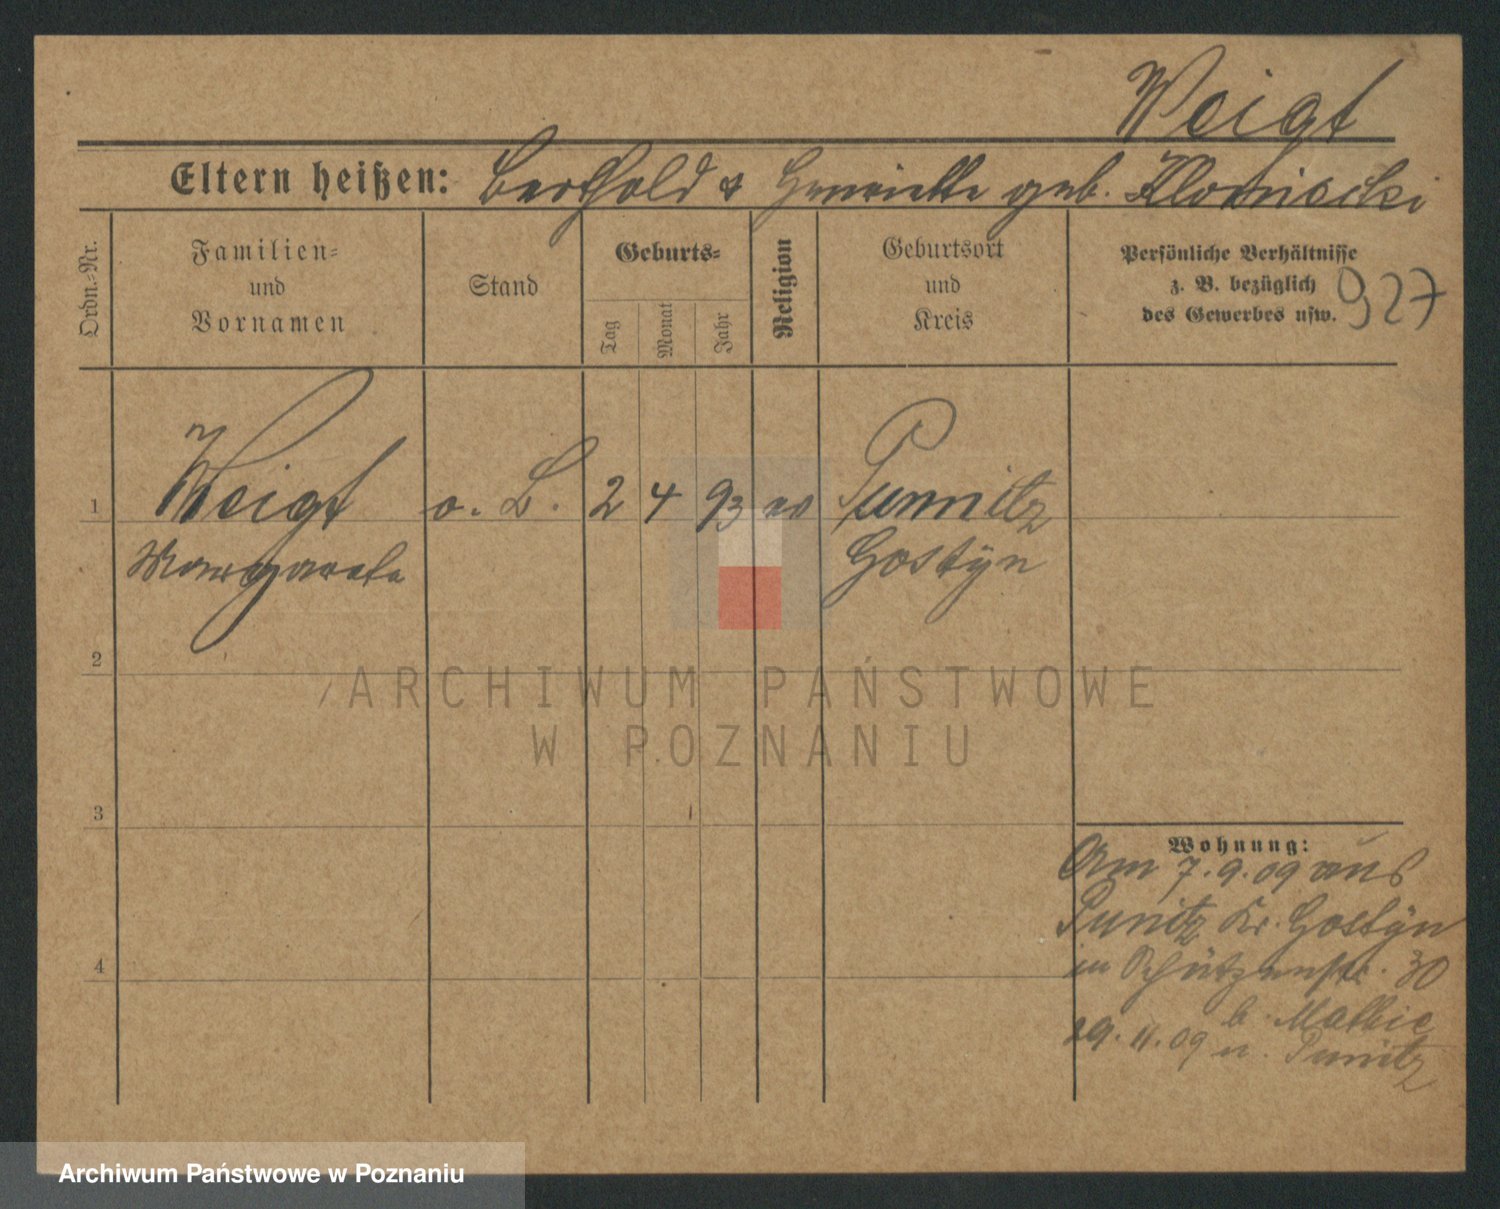 Weigt
Eltern heißen: Berthold & Henriette geb.
Ordn.-Nr.
Familien-
und
Vornamen
Stand
Geburts-
Tag
Monat
Jahr
Religion
Geburtsort
und
Kreis
Persönliche Verhältnisse
z. B. bezüglich
des Gewerbes usw.
927
1 Weigt o. B. 2 4 93 Punitz
Margarete Gostÿn
2
3
4
Wohnung:
Am 7.9.09 aus
Punitz Kr. Gostÿn
in Schützenstr. 30
b.
29.11.09 n. Punitz
ARCHIWUM PAŃSTWOWE
W POZNANIU
Archiwum Państwowe w Poznaniu